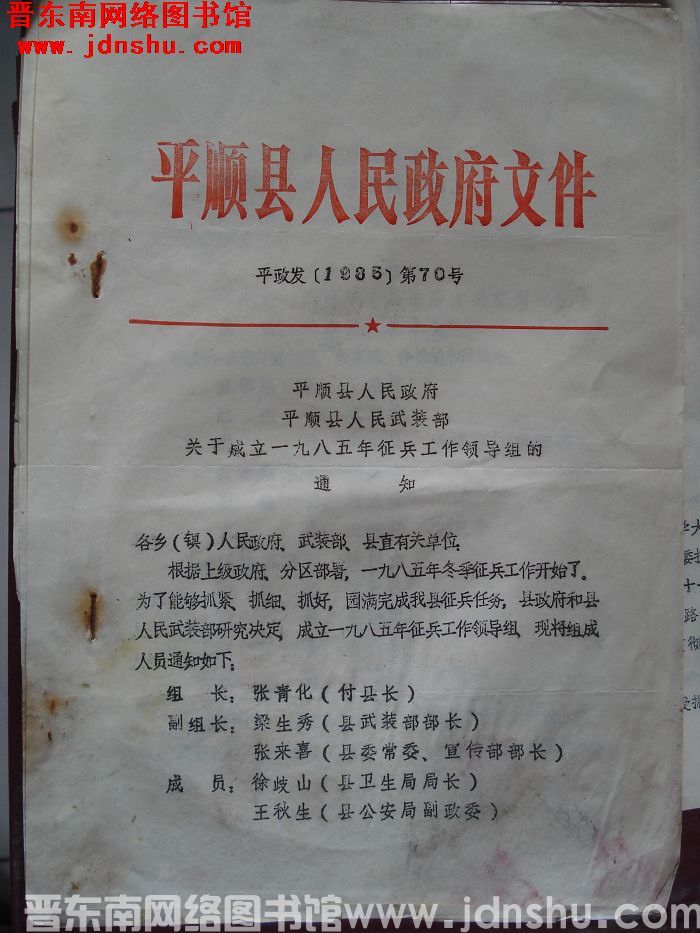 晋东南网络图书馆
www.jdnshu.com
平顺县人民政府文件
平政发〔1985〕第70号
平顺县人民政府
平顺县人民武装部
关于成立一九八五年征兵工作领导组的
通 知
各乡(镇)人民政府、武装部、县直有关单位:
根据上级政府、分区部署,一九八五年冬季征兵工作开始了。
为了能够抓紧、抓细、抓好,园满完成我县征兵任务,县政府和县
人民武装部研究决定,成立一九八五年征兵工作领导组,现将组成
人员通知如下:
组 长:张青化(付县长)
副组长:梁生秀(县武装部部长)
张来喜(县委常委、宣传部部长)
成 员:徐歧山(县卫生局局长)
王秋生(县公安局副政委)
晋东南网络图书馆www.jdnshu.com